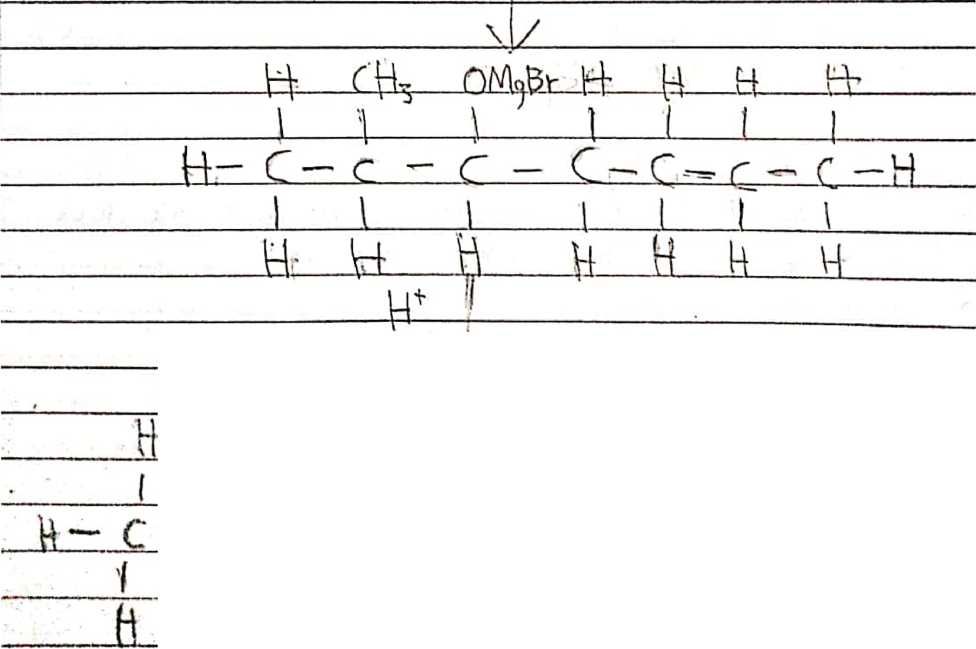 H CH₃ OMgBr H H H H
H - C - C - C - C - C = C - C - H
H H H H H H H
H⁺
H
H - C
H